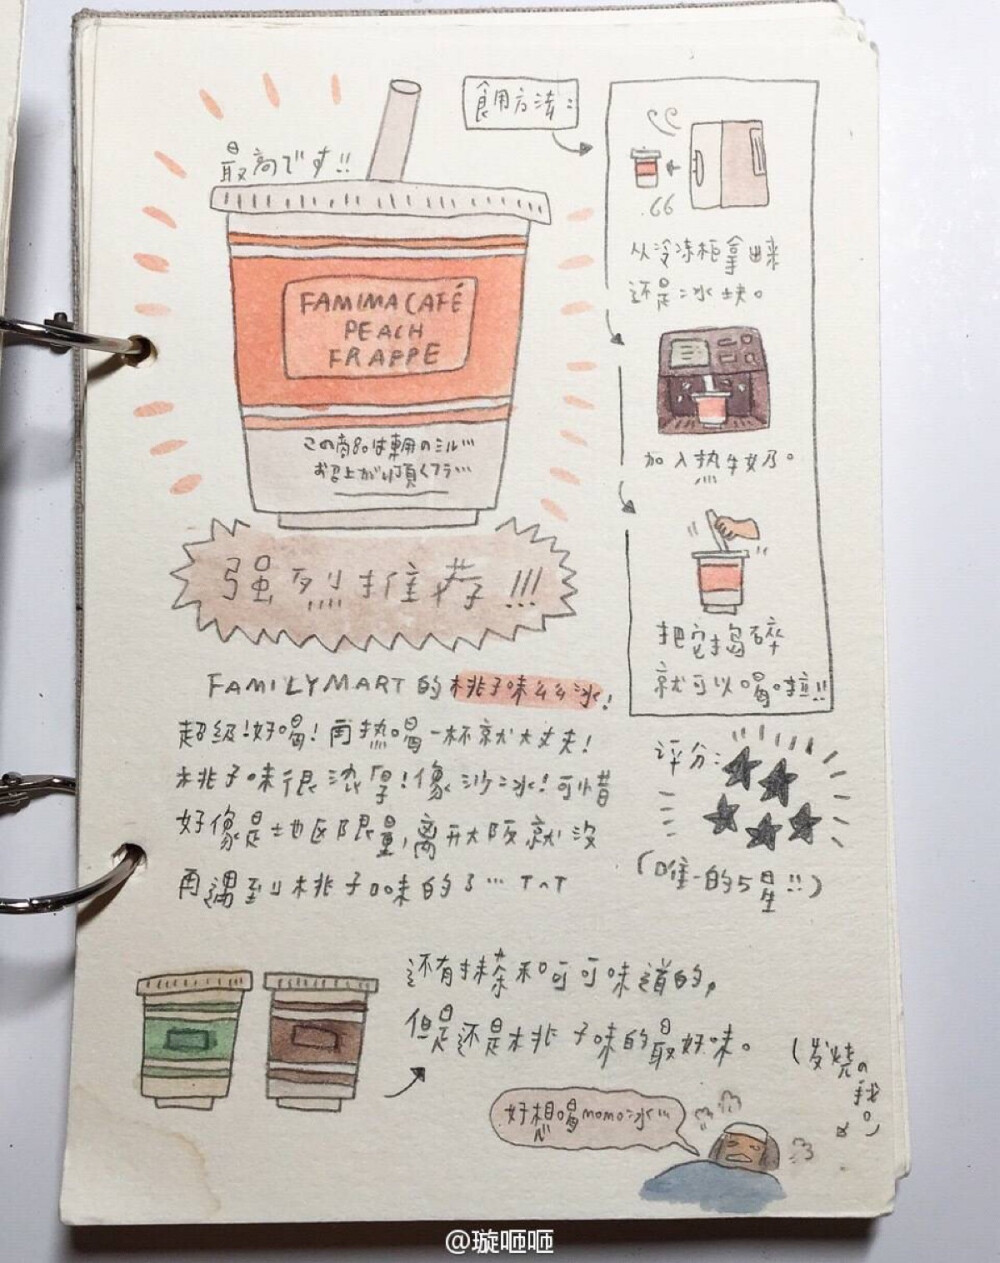 最高です!!
FAMIMA CAFÉ
PEACH
FRAPPE
この商品は専用のミル…
お召上がり頂くフラ…
强烈推荐!!!
食用方法:
从冷冻柜拿出来
还是冰块。
加入热牛奶。
把它捣碎
就可以喝啦!!
FAMILYMART的桃子味幺幺冰!
超级!好喝!再热喝一杯就大丈夫!
桃子味很浓厚!像沙冰!可惜
好像是地区限量,离开大阪就没
再遇到桃子口味的了… T^T
评分:
(唯一的5星!!)
还有抹茶和可可味道的,
但是还是桃子味的最好味。
好想喝momo冰…
(发烧の
我。)
@璇咂咂